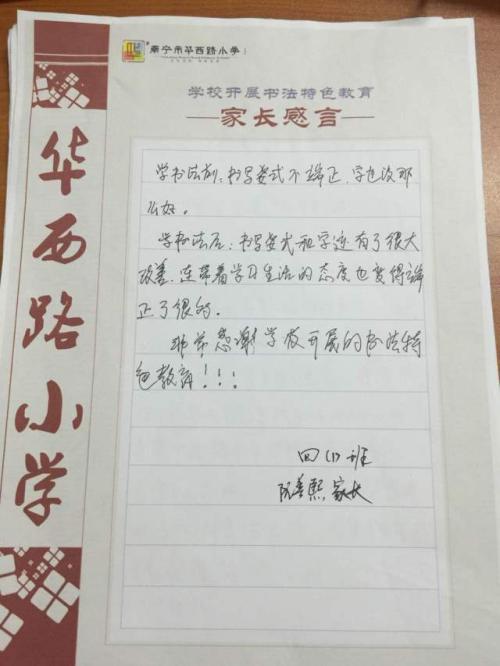 南宁市华西路小学
学校开展书法特色教育
—家长感言—
华西路小学
学书法前：书写姿式不端正，字也没那
么好。
学书法后：书写姿式和字迹有了很大
改善，连带着学习生活的态度也变得端
正了很多。
非常感谢学校开展的书法特
色教育！！！
四(1)班
阮善熙家长